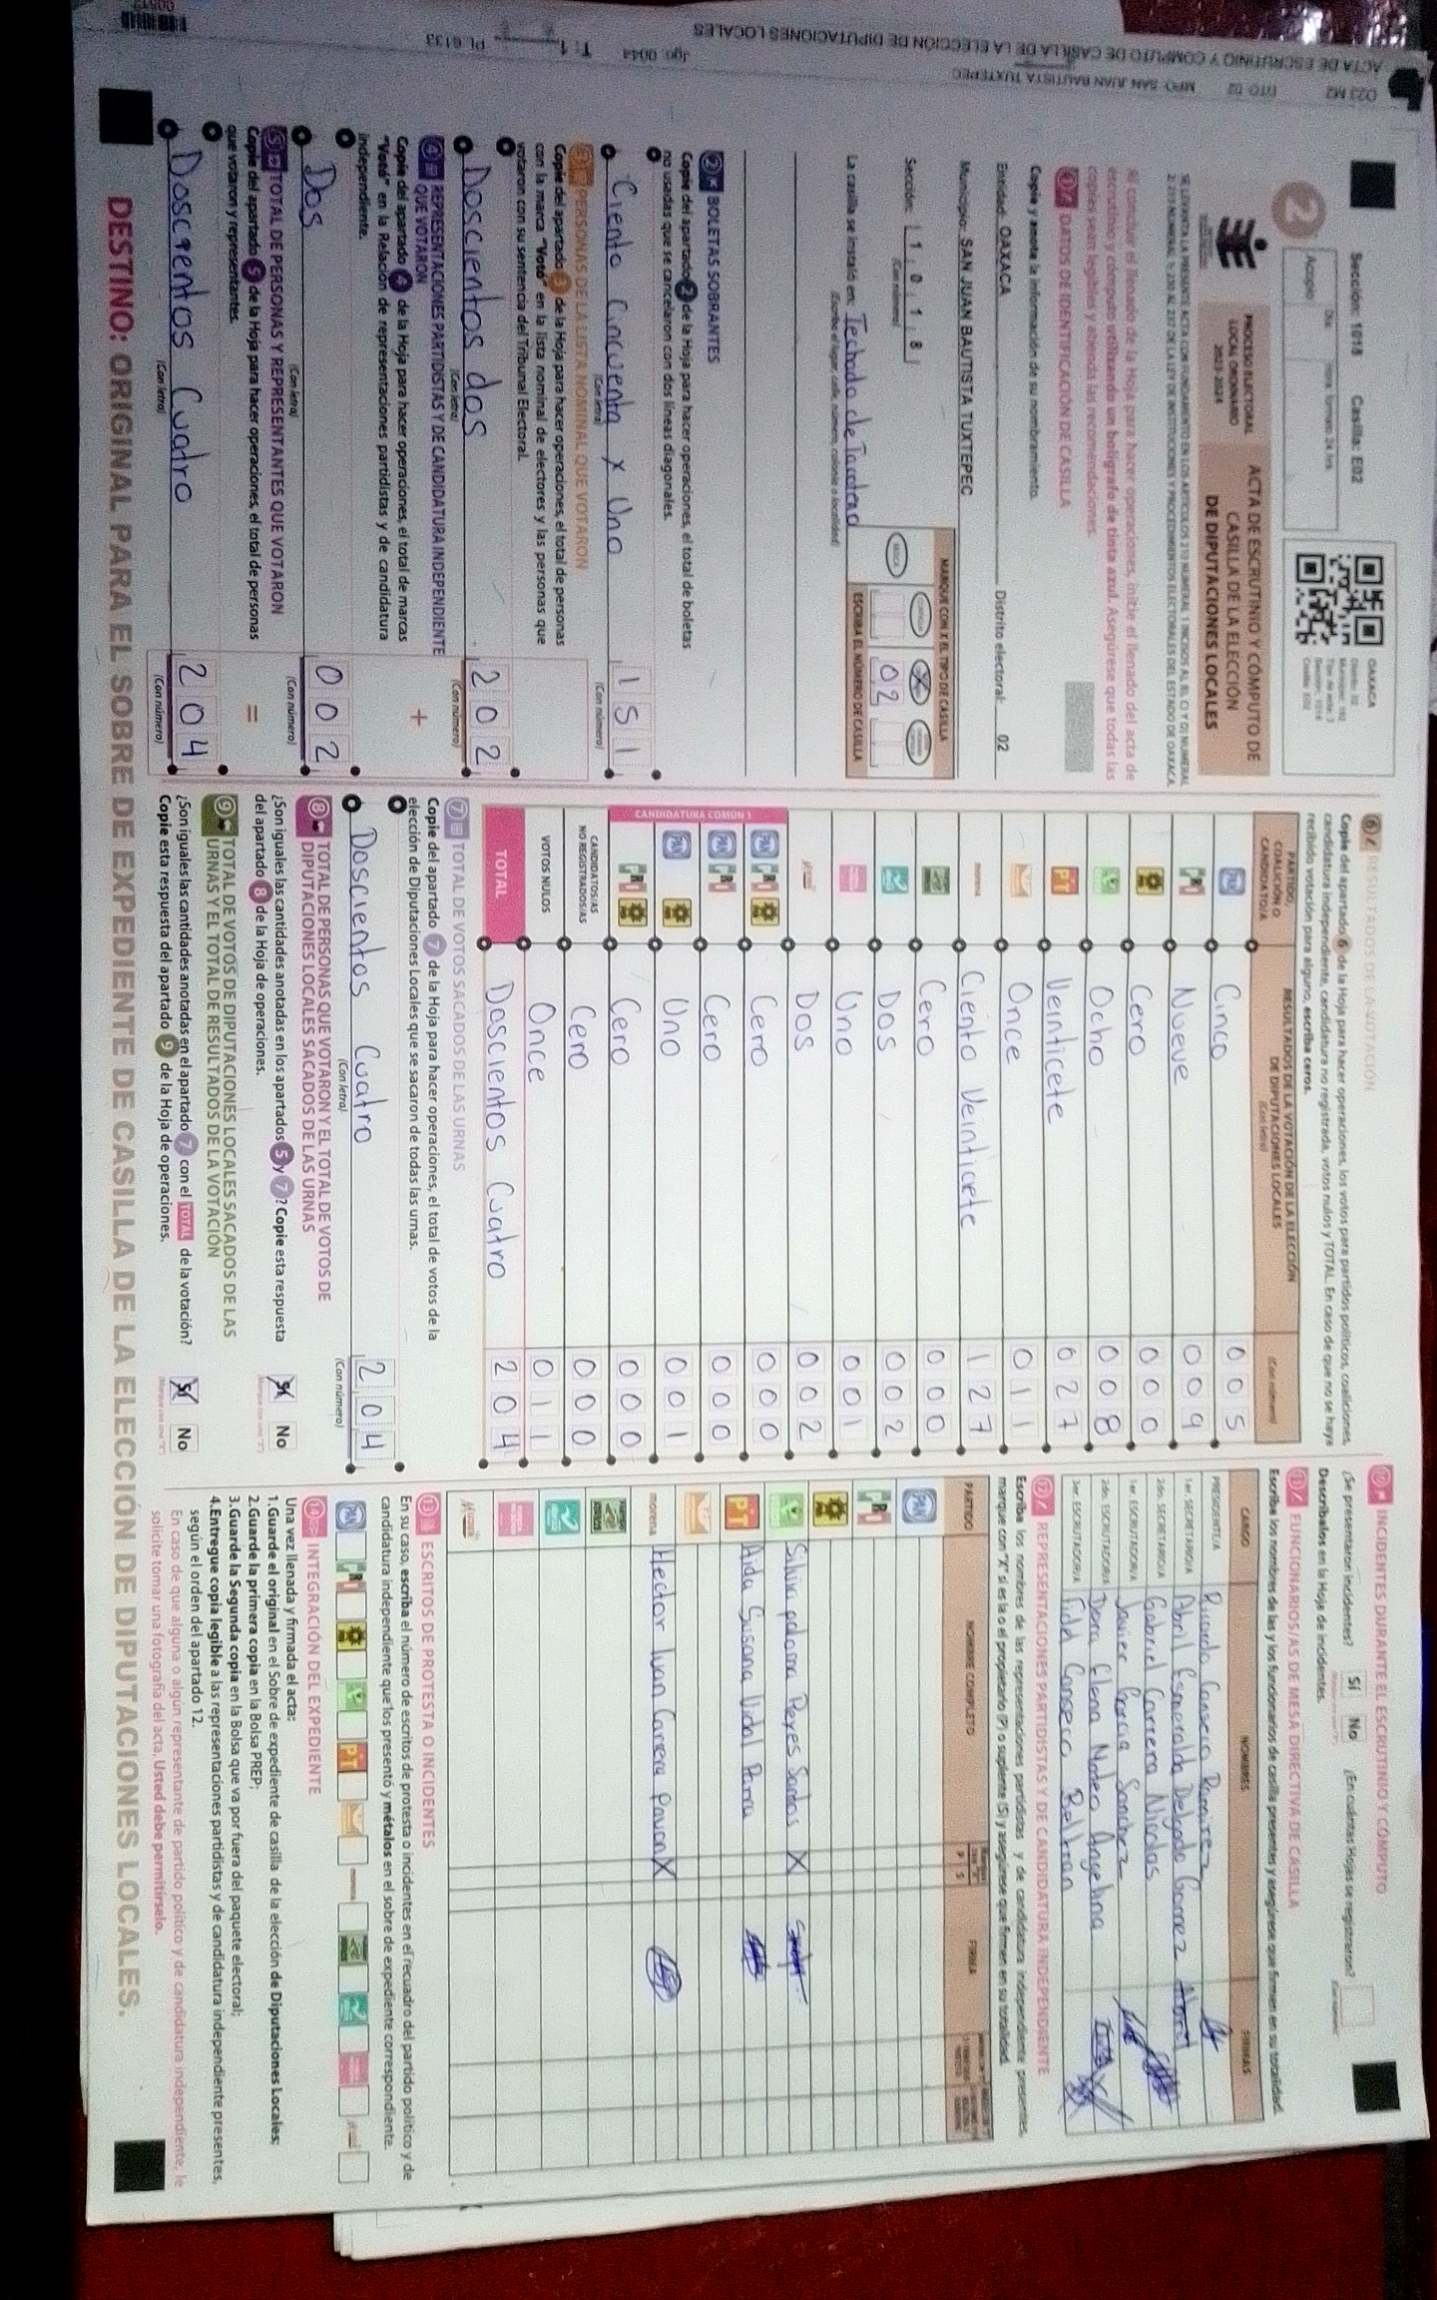 D23 M2 DTO 02 MPO SAN JUAN BAUTISTA TUXTEPEC
ACTA DE ESCRUTINIO Y CÓMPUTO DE CASILLA DE LA ELECCIÓN DE DIPUTACIONES LOCALES
Jgo: 0044 T: 1 PL 6133
Sección: 1018 Casilla: E02
OAXACA
2
Acopio
PROCESO ELECTORAL
LOCAL ORDINARIO
2023-2024
ACTA DE ESCRUTINIO Y CÓMPUTO DE
CASILLA DE LA ELECCIÓN
DE DIPUTACIONES LOCALES
Al concluir el llenado de la Hoja para hacer operaciones, inicie el llenado del acta de
escrutinio y cómputo utilizando un bolígrafo de tinta azul. Asegúrese que todas las
copias sean legibles y atienda las recomendaciones.
1 DATOS DE IDENTIFICACIÓN DE CASILLA
Copie y anote la información de su nombramiento.
Entidad: OAXACA Distrito electoral: 02
Municipio: SAN JUAN BAUTISTA TUXTEPEC
Sección: 1 0 1 8
(Con número)
MARQUE CON X EL TIPO DE CASILLA
02
ESCRIBA EL NÚMERO DE CASILLA
La casilla se instaló en: Techado de
(Escriba el lugar, calle, número, colonia o localidad)
2 BOLETAS SOBRANTES
Copie del apartado 2 de la Hoja para hacer operaciones, el total de boletas
no usadas que se cancelaron con dos líneas diagonales.
Ciento Cincuenta y Uno 151
(Con letra) (Con número)
3 PERSONAS DE LA LISTA NOMINAL QUE VOTARON
Copie del apartado 3 de la Hoja para hacer operaciones, el total de personas
con la marca "Votó" en la lista nominal de electores y las personas que
votaron con su sentencia del Tribunal Electoral.
Doscientos dos 202
(Con letra) (Con número)
4 REPRESENTACIONES PARTIDISTAS Y DE CANDIDATURA INDEPENDIENTE
QUE VOTARON +
Copie del apartado 4 de la Hoja para hacer operaciones, el total de marcas
"Votó" en la Relación de representaciones partidistas y de candidatura
independiente.
Dos 002
(Con letra) (Con número)
5 TOTAL DE PERSONAS Y REPRESENTANTES QUE VOTARON
Copie del apartado 5 de la Hoja para hacer operaciones, el total de personas =
que votaron y representantes.
Doscientos Cuatro 204
(Con letra) (Con número)
6 RESULTADOS DE LA VOTACIÓN
Copie del apartado 6 de la Hoja para hacer operaciones, los votos para partidos políticos, coaliciones,
candidatura independiente, candidatura no registrada, votos nulos y TOTAL. En caso de que no se haya
recibido votación para alguno, escriba ceros.
PARTIDO,
COALICIÓN O
CANDIDATO/A
RESULTADOS DE LA VOTACIÓN DE LA ELECCIÓN
DE DIPUTACIONES LOCALES
(Con letra) (Con número)
PAN Cinco 005
PRI Nueve 009
Cero 000
Ocho 008
PT Veinticete 027
Once 011
morena Ciento Veinticete 127
Cero 000
Dos 002
Uno 001
Dos 002
CANDIDATURA COMÚN 1
PAN PRI Cero 000
PAN PRI Cero 000
PAN Uno 001
PRI Cero 000
CANDIDATOS/AS
NO REGISTRADOS/AS Cero 000
VOTOS NULOS Once 011
TOTAL Doscientos Cuatro 204
7 TOTAL DE VOTOS SACADOS DE LAS URNAS
Copie del apartado 7 de la Hoja para hacer operaciones, el total de votos de la
elección de Diputaciones Locales que se sacaron de todas las urnas.
Doscientos Cuatro 204
(Con letra) (Con número)
8 TOTAL DE PERSONAS QUE VOTARON Y EL TOTAL DE VOTOS DE
DIPUTACIONES LOCALES SACADOS DE LAS URNAS
¿Son iguales las cantidades anotadas en los apartados 5 y 7? Copie esta respuesta
del apartado 8 de la Hoja de operaciones. Sí No
9 TOTAL DE VOTOS DE DIPUTACIONES LOCALES SACADOS DE LAS
URNAS Y EL TOTAL DE RESULTADOS DE LA VOTACIÓN
¿Son iguales las cantidades anotadas en el apartado 7 con el TOTAL de la votación?
Copie esta respuesta del apartado 9 de la Hoja de operaciones. Sí No
10 INCIDENTES DURANTE EL ESCRUTINIO Y CÓMPUTO
¿Se presentaron incidentes? Sí No ¿En cuántas Hojas se registraron?
Descríbalos en la Hoja de incidentes.
11 FUNCIONARIOS/AS DE MESA DIRECTIVA DE CASILLA
Escriba los nombres de las y los funcionarios de casilla presentes y asegúrese que firmen en su totalidad.
CARGO NOMBRES FIRMAS
PRESIDENTE/A Ricardo Canseco Ramirez
1er. SECRETARIO/A Abril Esmeralda Delgado Gomez
2do. SECRETARIO/A Gabriel Carrera Nicolas
1er. ESCRUTADOR/A Javier Garcia Sanchez
2do. ESCRUTADOR/A Elena Mateo Angelina
3er. ESCRUTADOR/A Canseco Beltran
12 REPRESENTACIONES PARTIDISTAS Y DE CANDIDATURA INDEPENDIENTE
Escriba los nombres de las representaciones partidistas y de candidatura independiente presentes,
marque con "X" si es la o el propietario (P) o suplente (S) y asegúrese que firmen en su totalidad.
PARTIDO NOMBRE COMPLETO P S FIRMA
PAN
PRI
Silvia paloma Reyes Santos X
PT Aida Susana Vidal Parra
morena Hector Ivan Carrera Pavon X
13 ESCRITOS DE PROTESTA O INCIDENTES
En su caso, escriba el número de escritos de protesta o incidentes en el recuadro del partido político y de
candidatura independiente que los presentó y métalos en el sobre de expediente correspondiente.
PAN PRI PT morena
14 INTEGRACIÓN DEL EXPEDIENTE
Una vez llenada y firmada el acta:
1.Guarde el original en el Sobre de expediente de casilla de la elección de Diputaciones Locales;
2.Guarde la primera copia en la Bolsa PREP;
3.Guarde la Segunda copia en la Bolsa que va por fuera del paquete electoral;
4.Entregue copia legible a las representaciones partidistas y de candidatura independiente presentes,
según el orden del apartado 12.
En caso de que alguna o algún representante de partido político y de candidatura independiente, le
solicite tomar una fotografía del acta, Usted debe permitírselo.
DESTINO: ORIGINAL PARA EL SOBRE DE EXPEDIENTE DE CASILLA DE LA ELECCIÓN DE DIPUTACIONES LOCALES.